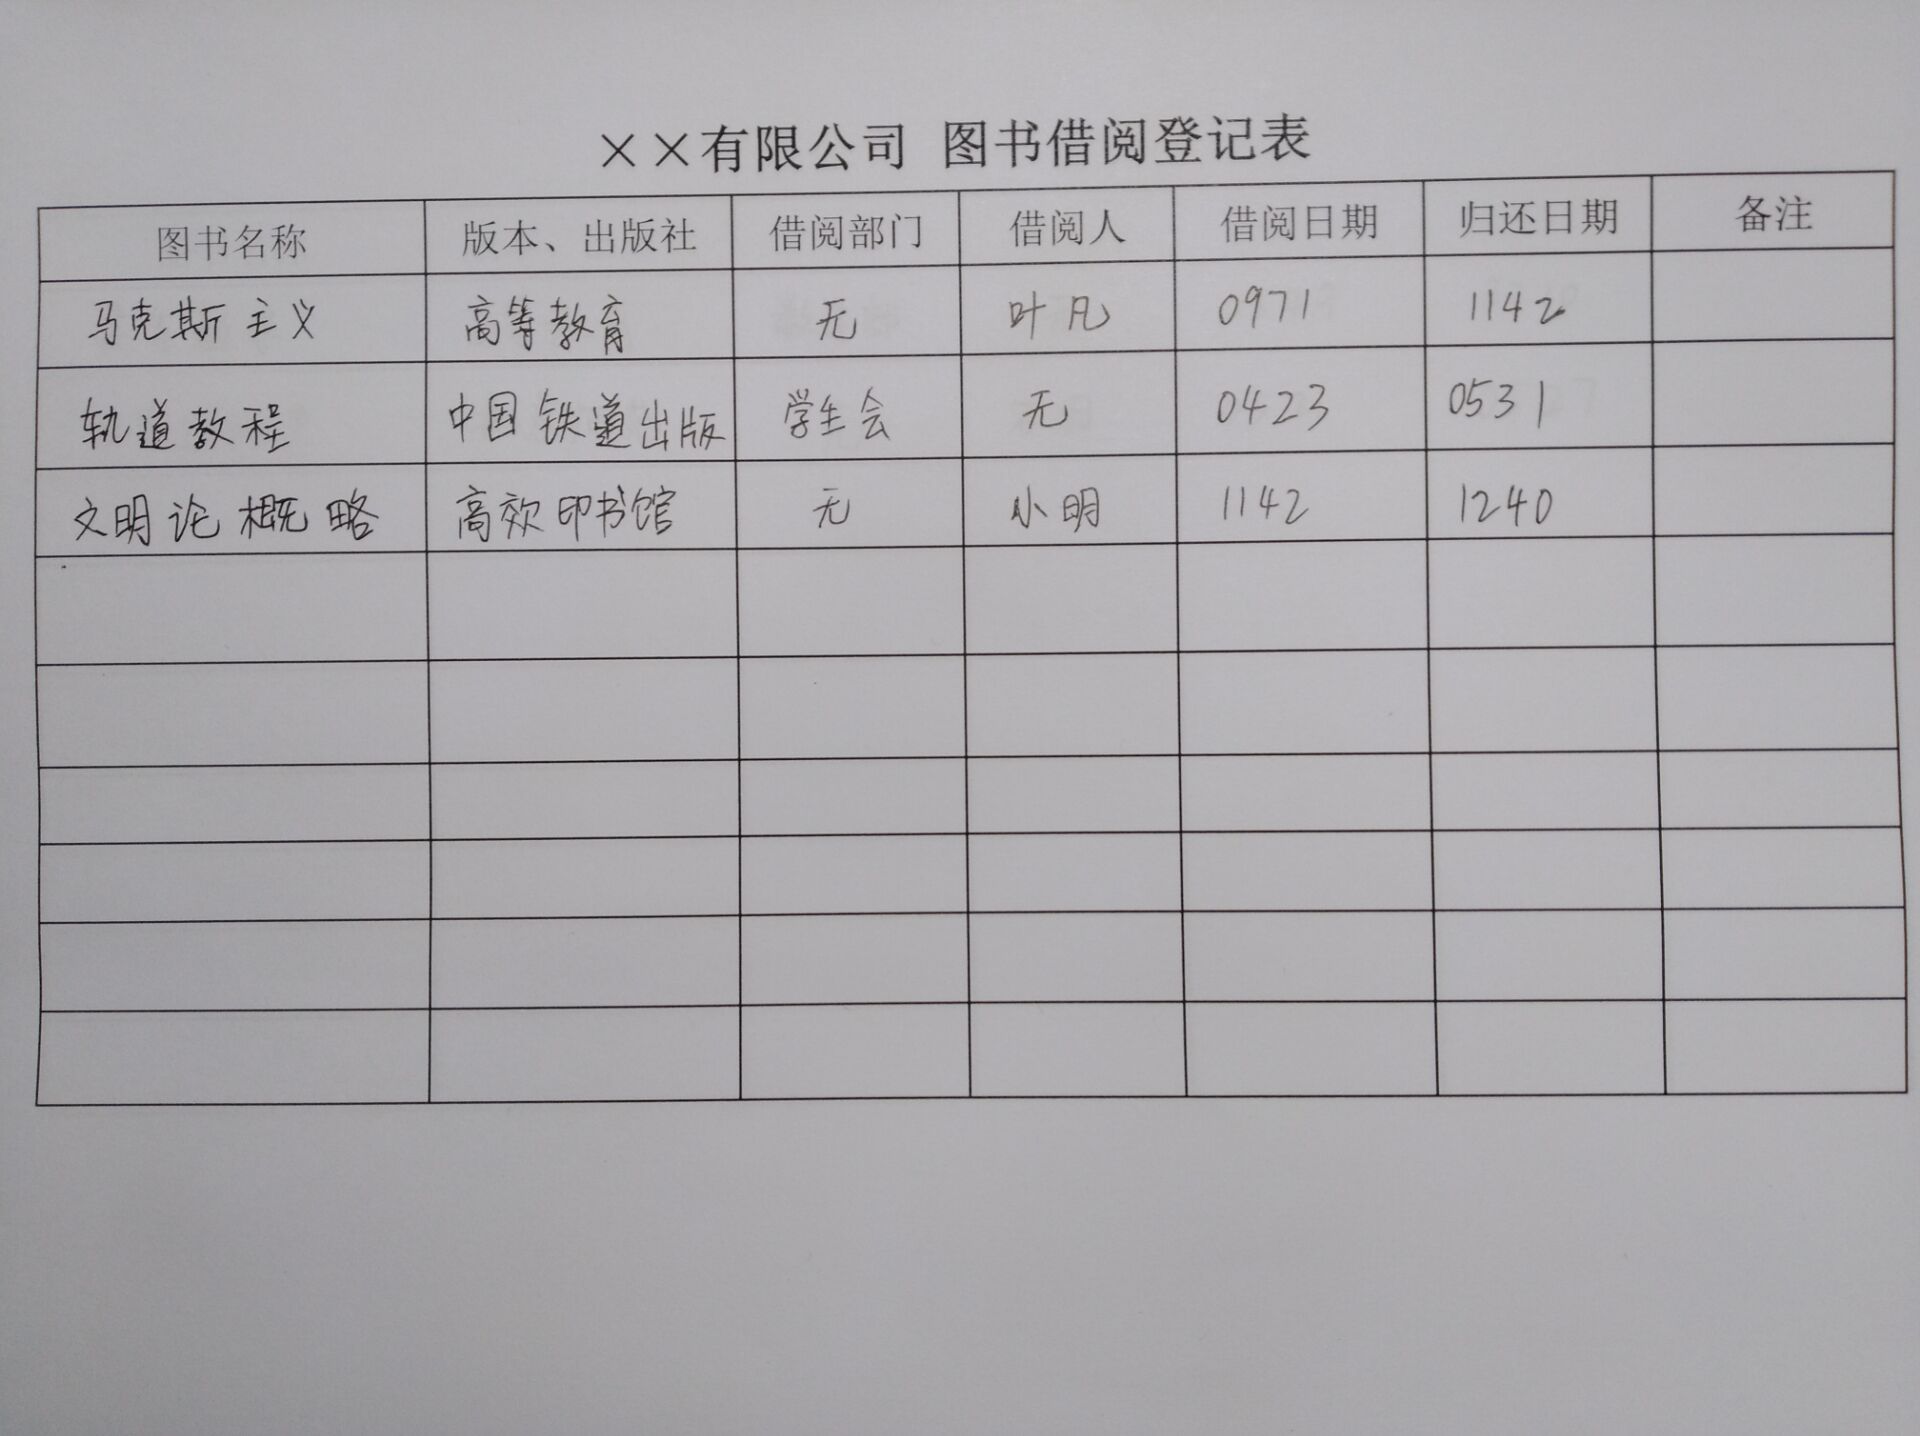 ××有限公司 图书借阅登记表
图书名称 版本、出版社 借阅部门 借阅人 借阅日期 归还日期 备注
马克斯主义 高等教育 无 叶凡 0971 1142
轨道教程 中国铁道出版 学生会 无 0423 0531
文明论概略 高效印书馆 无 小明 1142 1240